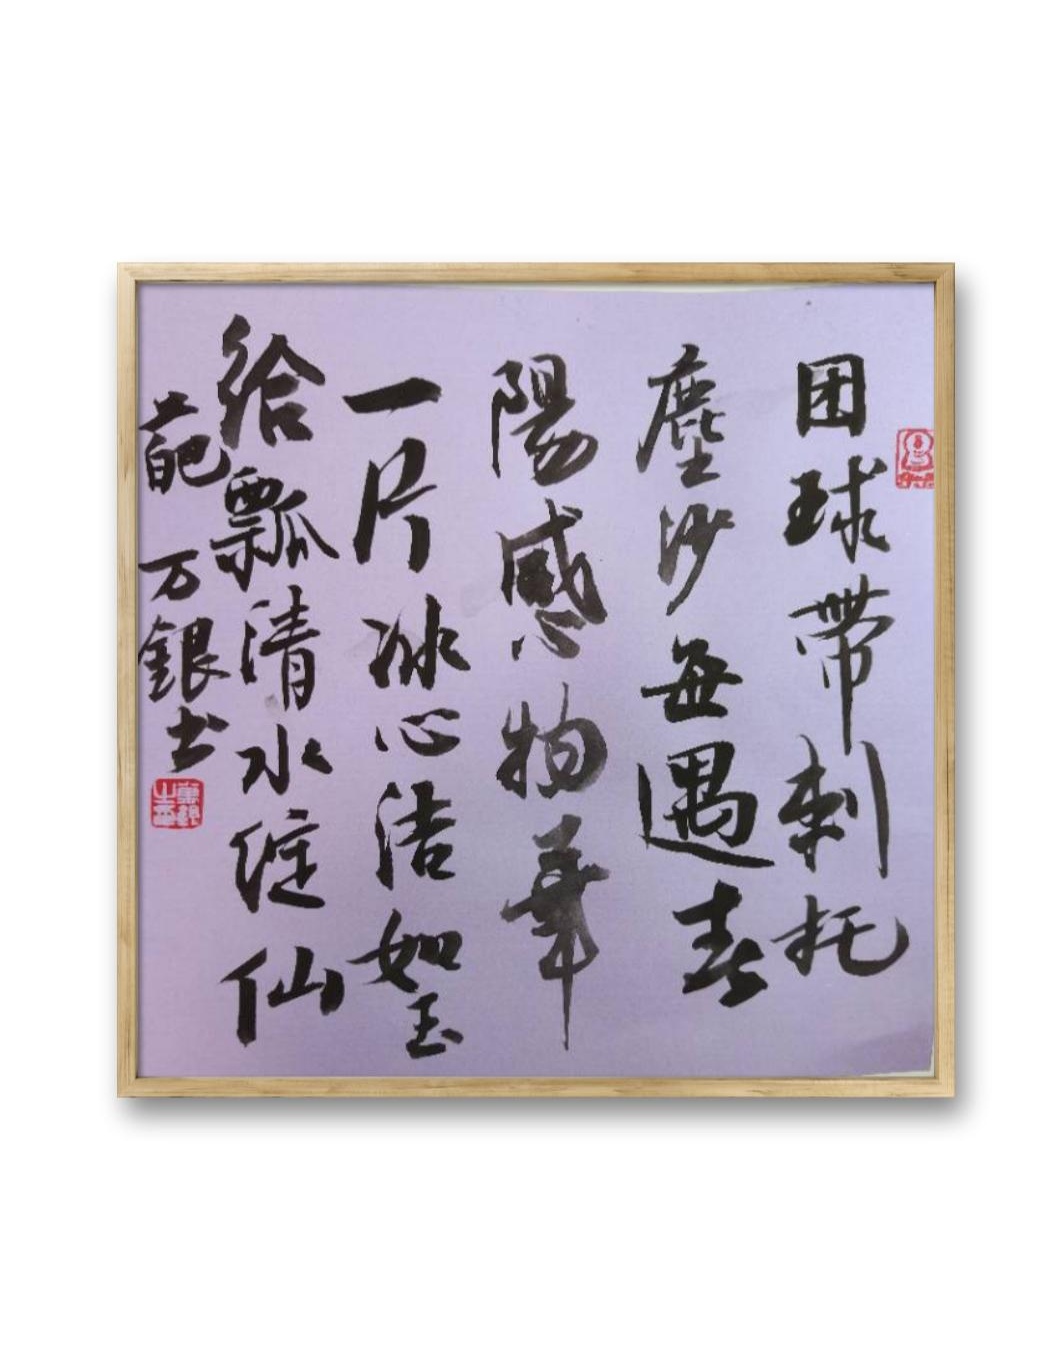 团球帶刺托
塵沙每遇春
陽感物華
一片冰心洁如玉
给瓢清水绽仙
葩 万銀书